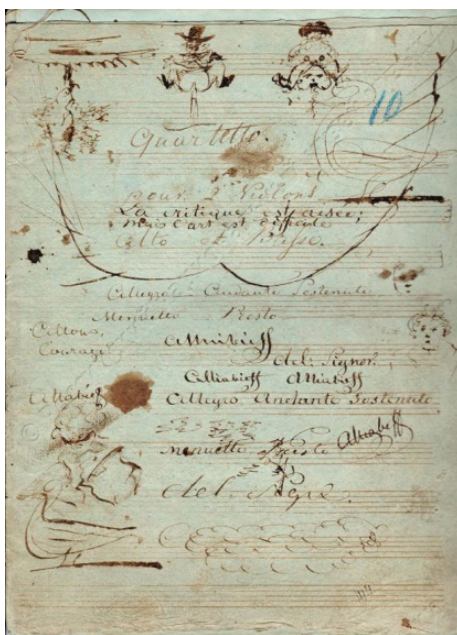 10
Quartetto.
pour 2 Violons
La critique est aisée;
mais l'art est difficile
Alto et Basse.
Allegro Andante Sostenuto
Menuetto Presto
Allons,
Courage
Alliabieff
del: Signor,
Alliabieff Alliabieff
Alliabieff
Allegro Andante Sostenuto
Menuetto Presto Alliabieff
del. Sigre.